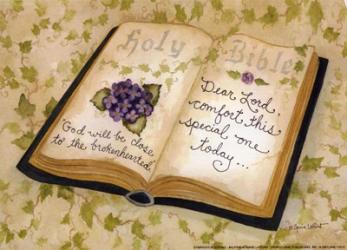 Holy Bible
"God will be close
to the brokenhearted."
Dear Lord,
comfort this
special one
today...